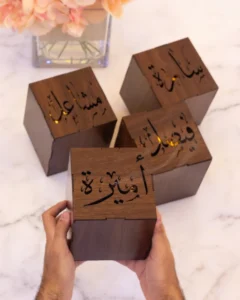 سارة
مشاعل
فيصل
أميرة